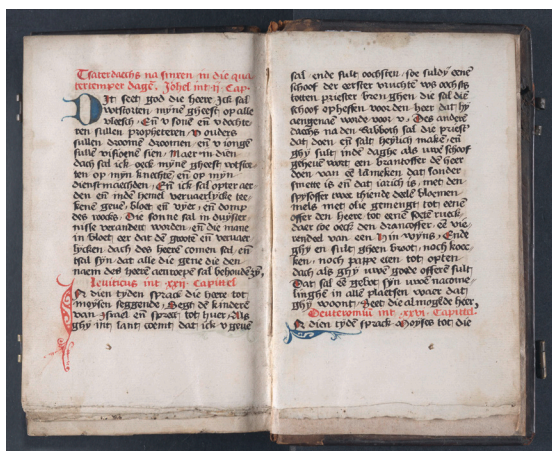 Tsaterdaechs na sinxen in die qua
tertemper dagē. Johel int ii Cap.
Dit seet god die heere Ick sal
wtstorten mynē gheest op alle
vleesch. Eñ v sonē eñ v dochte
ren sullen propheteren. v ouders
sullen droomē droomen. eñ v ionge
sullē visioenē sien. Maer in dien
daeh sal ick oeck mynē gheest wtstor
ten op myn knechtē eñ op myn
dienstmaechden. Eñ ick sal opter aer
den eñ indē hemel vervaerlycke tee
kenē gevē. bloet eñ vyer. eñ domp
des roocks. Die sonne sal in duyster
nisse verandert worden. eñ die mane
in bloet. eer dat dē grootē eñ vervaer
lycken dach des heerē comen sal. eñ
tsal syn dat alle die gene die den
naem des heerē aenroepē sal behoudē syn,
Leviticus int xxii Capittel
In dien tyden sprack die heere tot
moysen seggende. Segt dē kinderē
van Israel eñ spreect tot huer. Als
ghy int lant coemt dat ick v gevē
sal. ende sult oochsten. soe suldy eenē
schoof der eerster vruchtē ws oochsts
totten priester brenghen die sal diē
schoof opheffen voor den heer dat hy
aengenaē worde voor v. Des anderē
daechs na den sabboth sal die priest
dat doen eñ salt heylich makē. eñ
ghy sult indē daghe als uwē schoof
geheilt wort een brantoffer dē heer
doen van eē lāmeken dat sonder
smette is eñ dat iarich is. met den
spysoffer twee thiende deelē bloemen
mels met olie gemengt tot eenē
offer den heere tot eenē soetē rueck.
daer toe oeck den drancoffer. eē vie
rendeel van een Hin wyns. Ende
ghy en sult gheen broot. noch koec
ken. noch pappe eten tot opten
dach als ghy uwē godē offerē sult
Dat sal eē gebot syn uwē nacome
linghē in allē plaetsen waer dat
ghy woont. Seet die almogēde heer,
Deuteromiū int xxvi Capittel.
In dien tydē sprack Moyses tot die